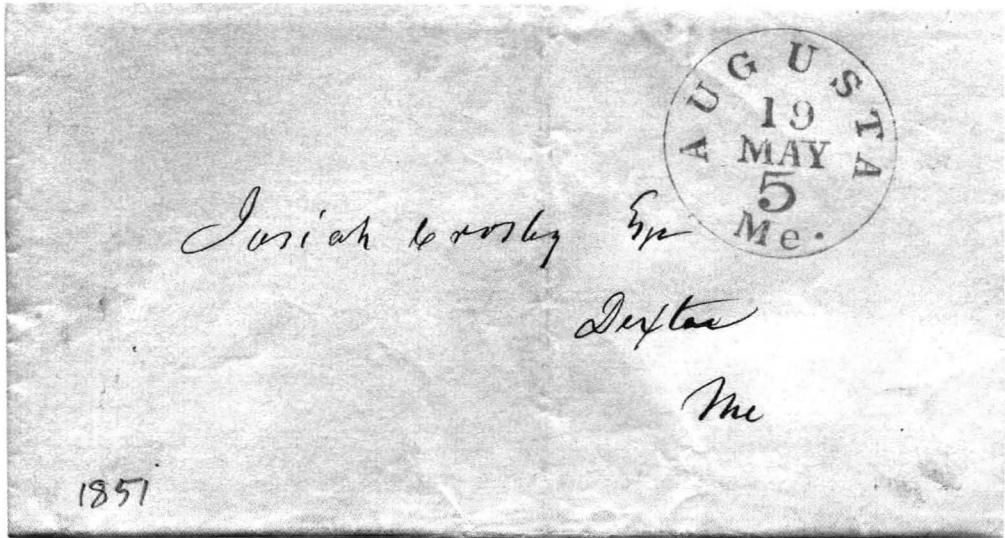 AUGUSTA
19
MAY
5
Me.
Josiah Crosby Esqr
Dexter
Me
1851